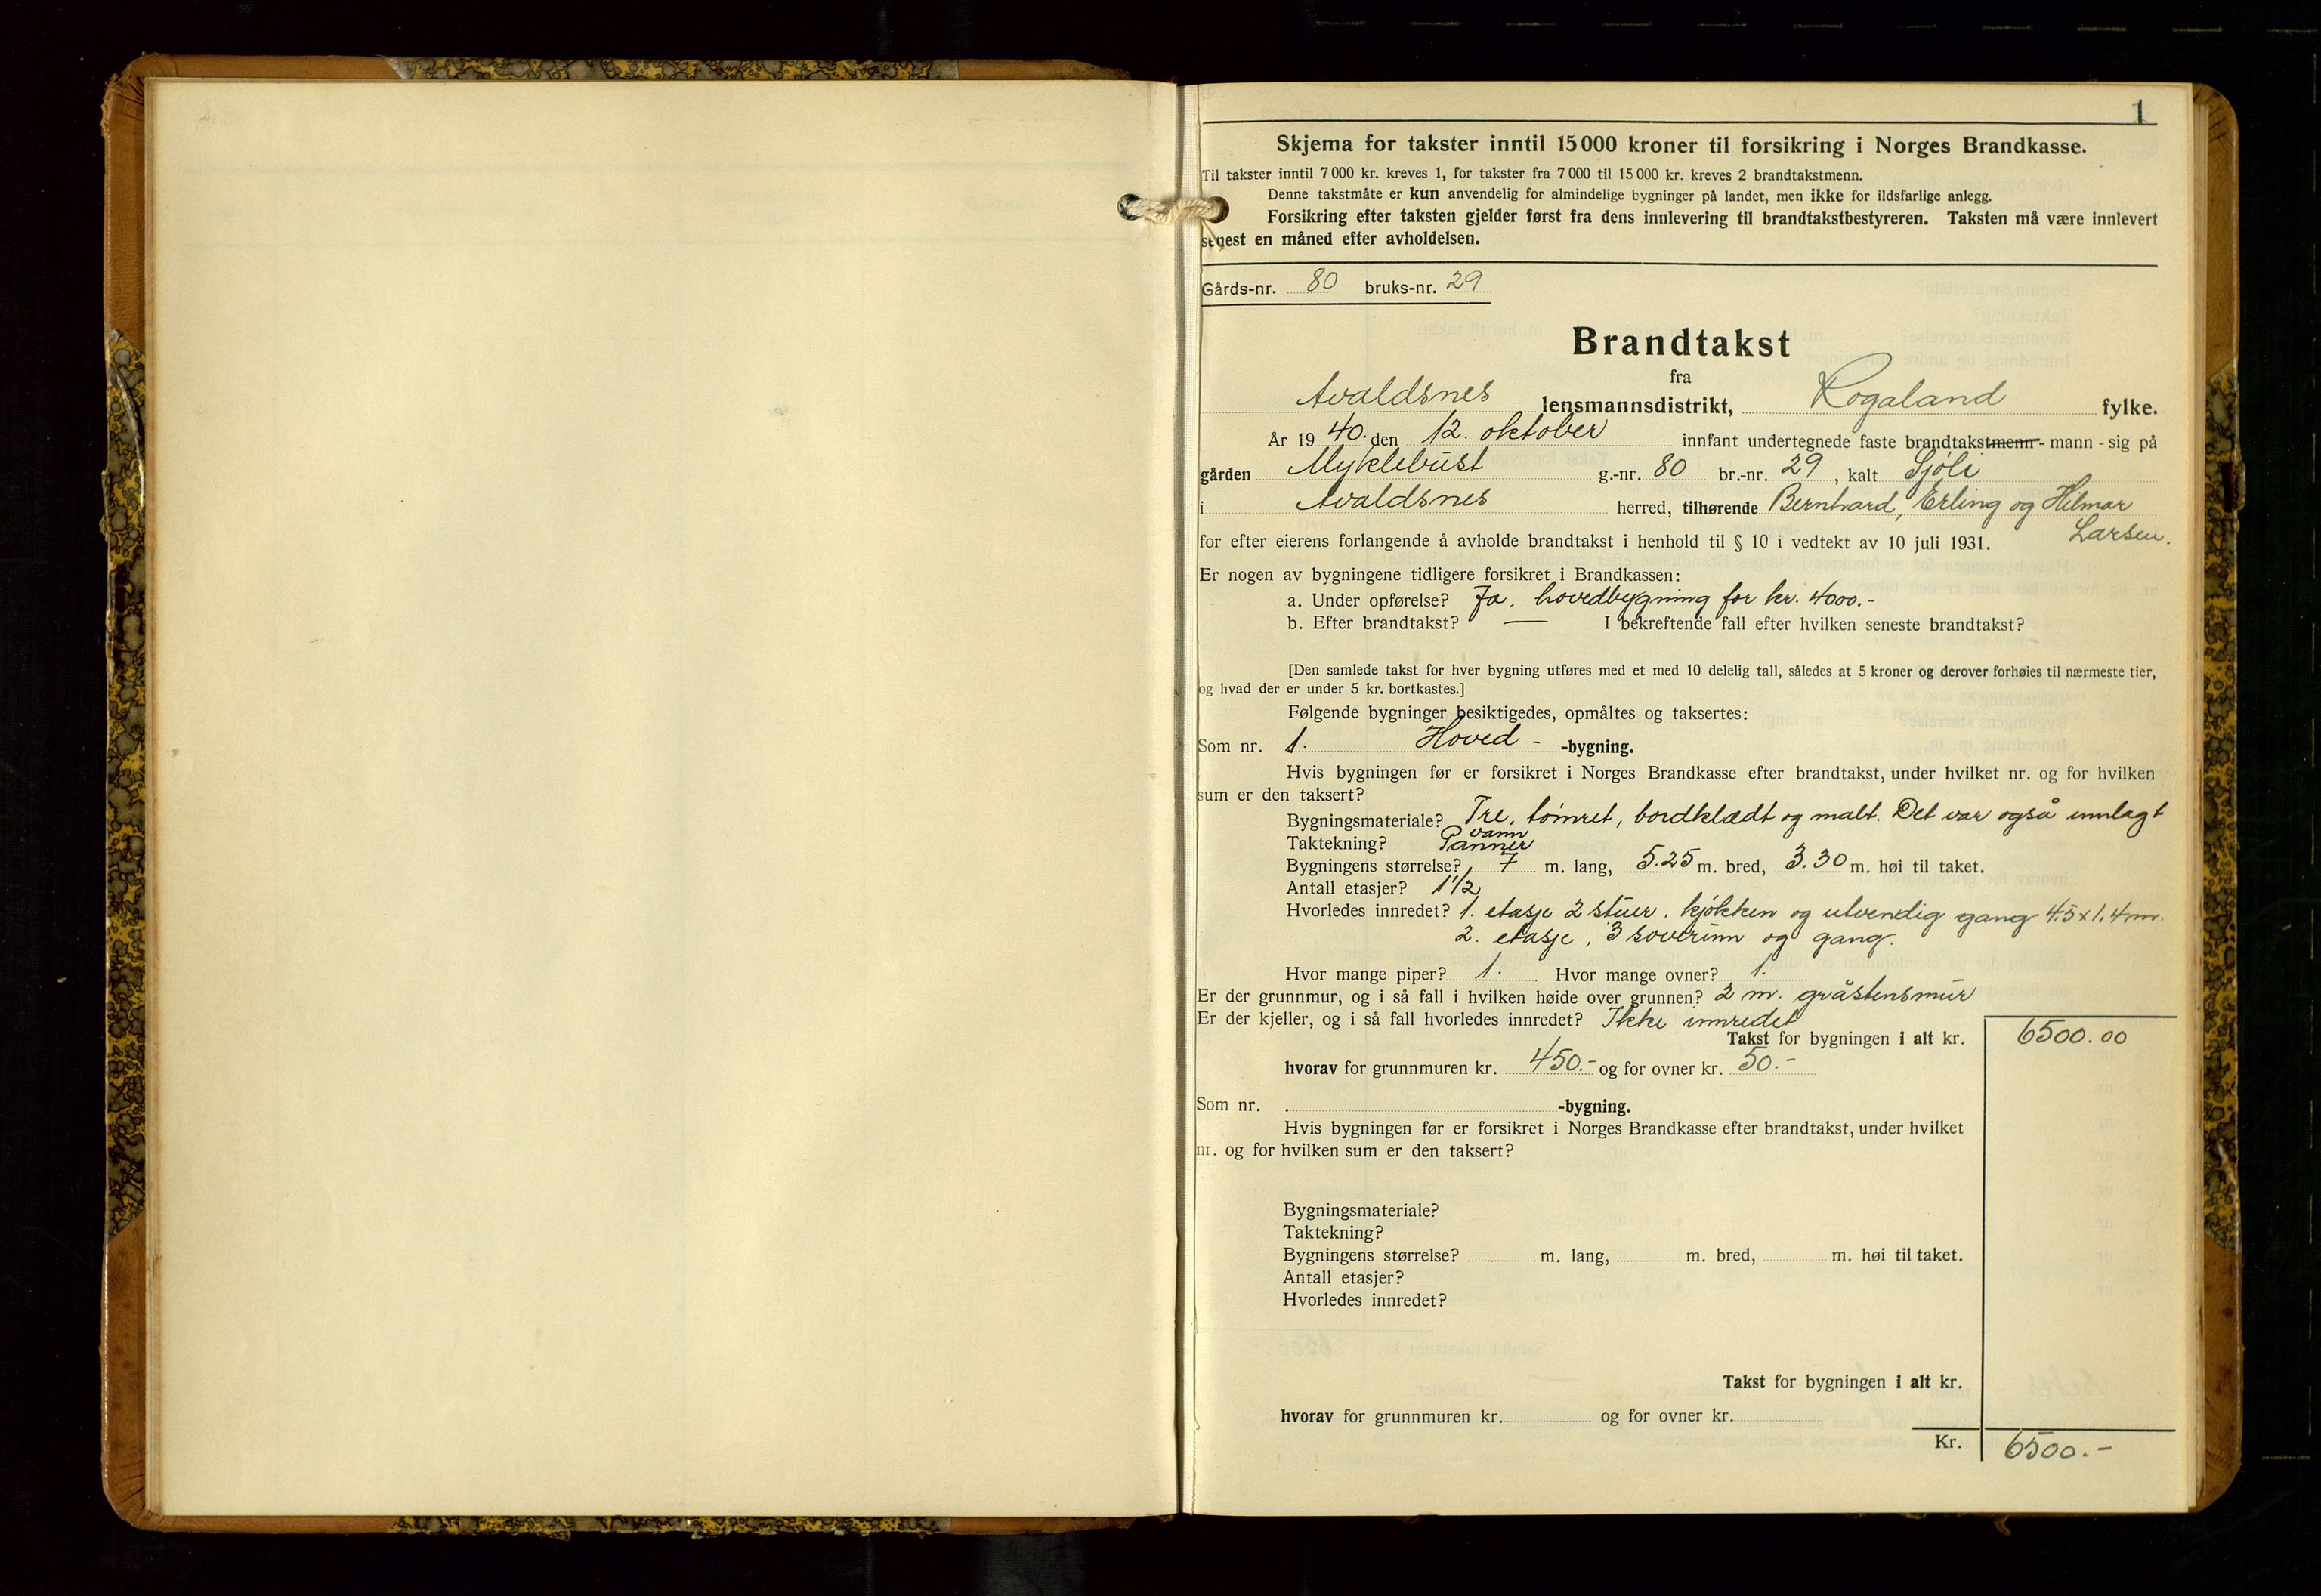 1
Skjema for takster inntil 15 000 kroner til forsikring i Norges Brandkasse.
Til takster inntil 7 000 kr. kreves 1, for takster fra 7 000 til 15 000 kr. kreves 2 brandtakstmenn.
Denne takstmåte er kun anvendelig for almindelige bygninger på landet, men ikke for ildsfarlige anlegg.
Forsikring efter taksten gjelder først fra dens innlevering til brandtakstbestyreren. Taksten må være innlevert
senest en måned efter avholdelsen.
Gårds-nr. 80 bruks-nr. 29
Brandtakst
fra
Avaldsnes lensmannsdistrikt, Rogaland fylke.
År 1940. den 12. oktober innfant undertegnede faste brandtakstmenn - mann - sig på
gården Myklebust g.-nr. 80 br.-nr. 29, kalt Sjøli
i Avaldsnes herred, tilhørende Bernhard, Erling og Hilmar
Larsen.
for efter eierens forlangende å avholde brandtakst i henhold til § 10 i vedtekt av 10 juli 1931.
Er nogen av bygningene tidligere forsikret i Brandkassen:
a. Under opførelse? Ja, hovedbygning for kr. 4000.-
b. Efter brandtakst? — I bekreftende fall efter hvilken seneste brandtakst?
[Den samlede takst for hver bygning utføres med et med 10 delelig tall, således at 5 kroner og derover forhøies til nærmeste tier,
og hvad der er under 5 kr. bortkastes.]
Følgende bygninger besiktigedes, opmåltes og taksertes:
Som nr. 1. Hoved - -bygning.
Hvis bygningen før er forsikret i Norges Brandkasse efter brandtakst, under hvilket nr. og for hvilken
sum er den taksert?
Bygningsmateriale? Tre, tømret, bordklædt og malt. Det var også innlagt
vann
Taktekning? Panner
Bygningens størrelse? 7 m. lang, 5.25 m. bred, 3.30 m. høi til taket.
Antall etasjer? 1 1/2
Hvorledes innredet? 1. etasje 2 stuer, kjøkken og utvendig gang 4.5 x 1.4 m.
2. etasje, 3 soverum og gang.
Hvor mange piper? 1. Hvor mange ovner? 1.
Er der grunnmur, og i så fall i hvilken høide over grunnen? 2 m. gråstensmur
Er der kjeller, og i så fall hvorledes innredet? Ikke innredet
Takst for bygningen i alt kr. 6500.00
hvorav for grunnmuren kr. 450.- og for ovner kr. 50.-
Som nr. . -bygning.
Hvis bygningen før er forsikret i Norges Brandkasse efter brandtakst, under hvilket
nr. og for hvilken sum er den taksert?
Bygningsmateriale?
Taktekning?
Bygningens størrelse? m. lang, m. bred, m. høi til taket.
Antall etasjer?
Hvorledes innredet?
Takst for bygningen i alt kr.
hvorav for grunnmuren kr. og for ovner kr.
Kr. 6500.-